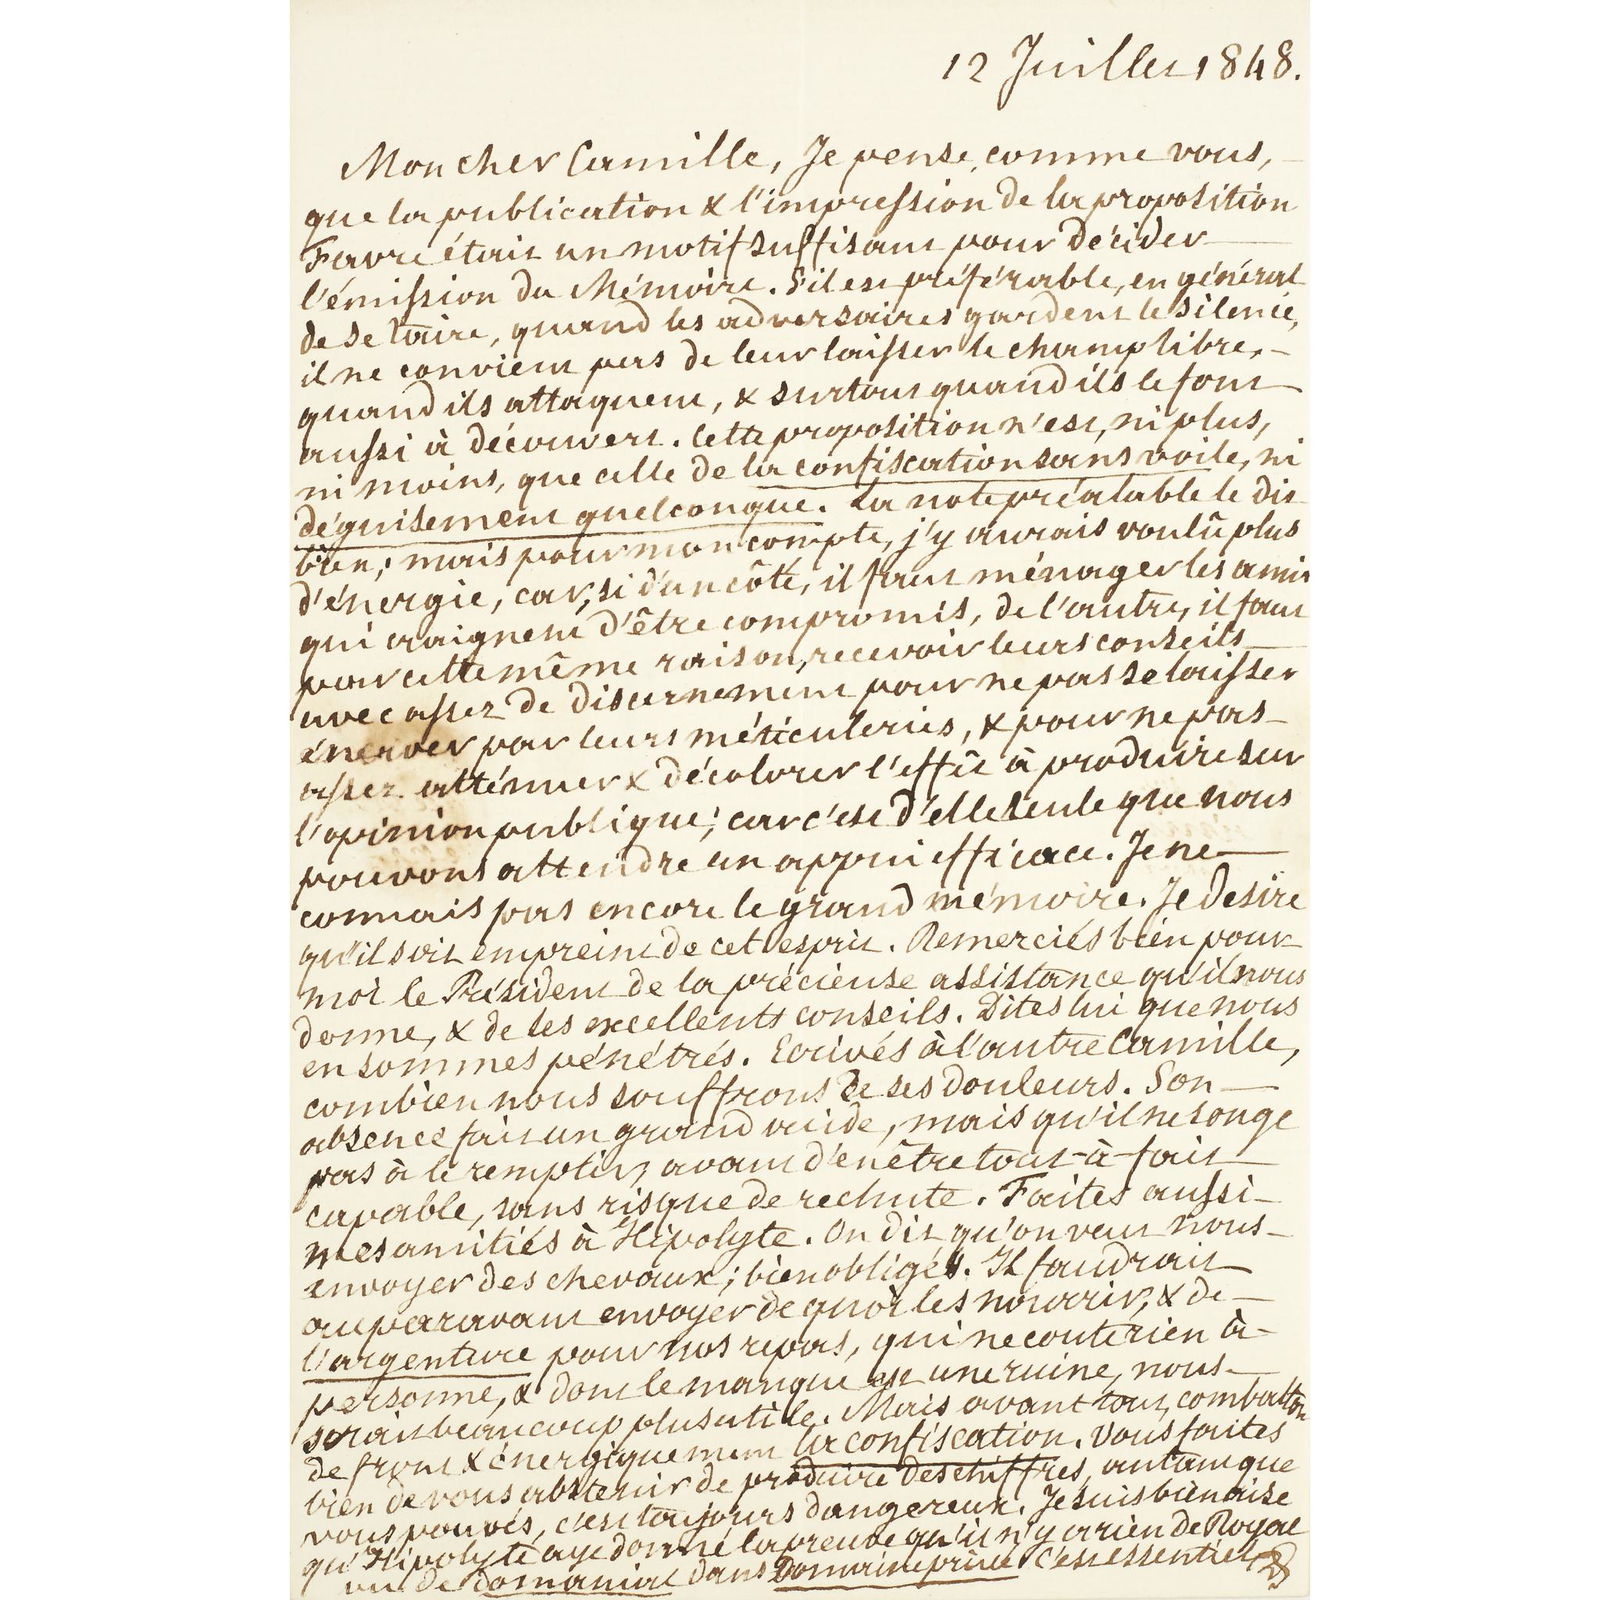 12 Juillet 1848.
Mon cher Camille, Je pense, comme vous,
que la publication & l'impression de la proposition
Favre était un motif suffisant pour décider
l'émission du Mémoire. S'il est préférable, en général
de se taire, quand les adversaires gardent le silence,
il ne convient pas de leur laisser le champ libre,
quand ils attaquent, & surtout quand ils le font
aussi à découvert. Cette proposition n'est, ni plus,
ni moins, que celle de la confiscation sans voile, ni
déguisement quelconque. La note préalable le dit
bien; mais pour mon compte, j'y aurais voulû plus
d'énergie, car, si d'un côté, il faut ménager les amis
qui craignent d'être compromis, de l'autre, il faut
par cette même raison, recevoir leurs conseils
avec assez de discernement pour ne pas se laisser
énerver par leurs méticuleries, & pour ne pas
assez atténuer & décolorer l'effet à produire sur
l'opinion publique; car c'est d'elle seule que nous
pouvons attendre un appui efficace. Je ne
connais pas encore le grand mémoire. Je desire
qu'il soit empreint de cet esprit. Remerciés bien pour
moi le Président de la précieuse assistance qu'il nous
donne, & de ses excellents conseils. Dites lui que nous
en sommes pénétrés. Ecrivés à l'autre Camille,
combien nous souffrons de ses douleurs. Son
absence fait un grand vuide, mais qu'il ne songe
pas à le remplir, avant d'en être tout-à-fait
capable, sans risque de rechute. Faites aussi
mes amitiés à Hipolyte. On dit qu'on veut nous
envoyer des chevaux; bien obligés. Il faudrait
auparavant envoyer de quoi les nourrir, & de
l'argenture pour nos repas, qui ne coute rien à
personne, & dont le manque est une ruine, nous
serait beaucoup plus utile. Mais avant tout, combattons
de front & énergiquement la confiscation. Vous faites
bien de vous abstenir de produire des chiffres, autant que
vous pouvés, c'est toujours dangereux. Je suis bien aise
qu'Hipolyte aye donné la preuve qu'il n'y a rien de Royal
ou de domanial dans Domaine privé c'est essentiel